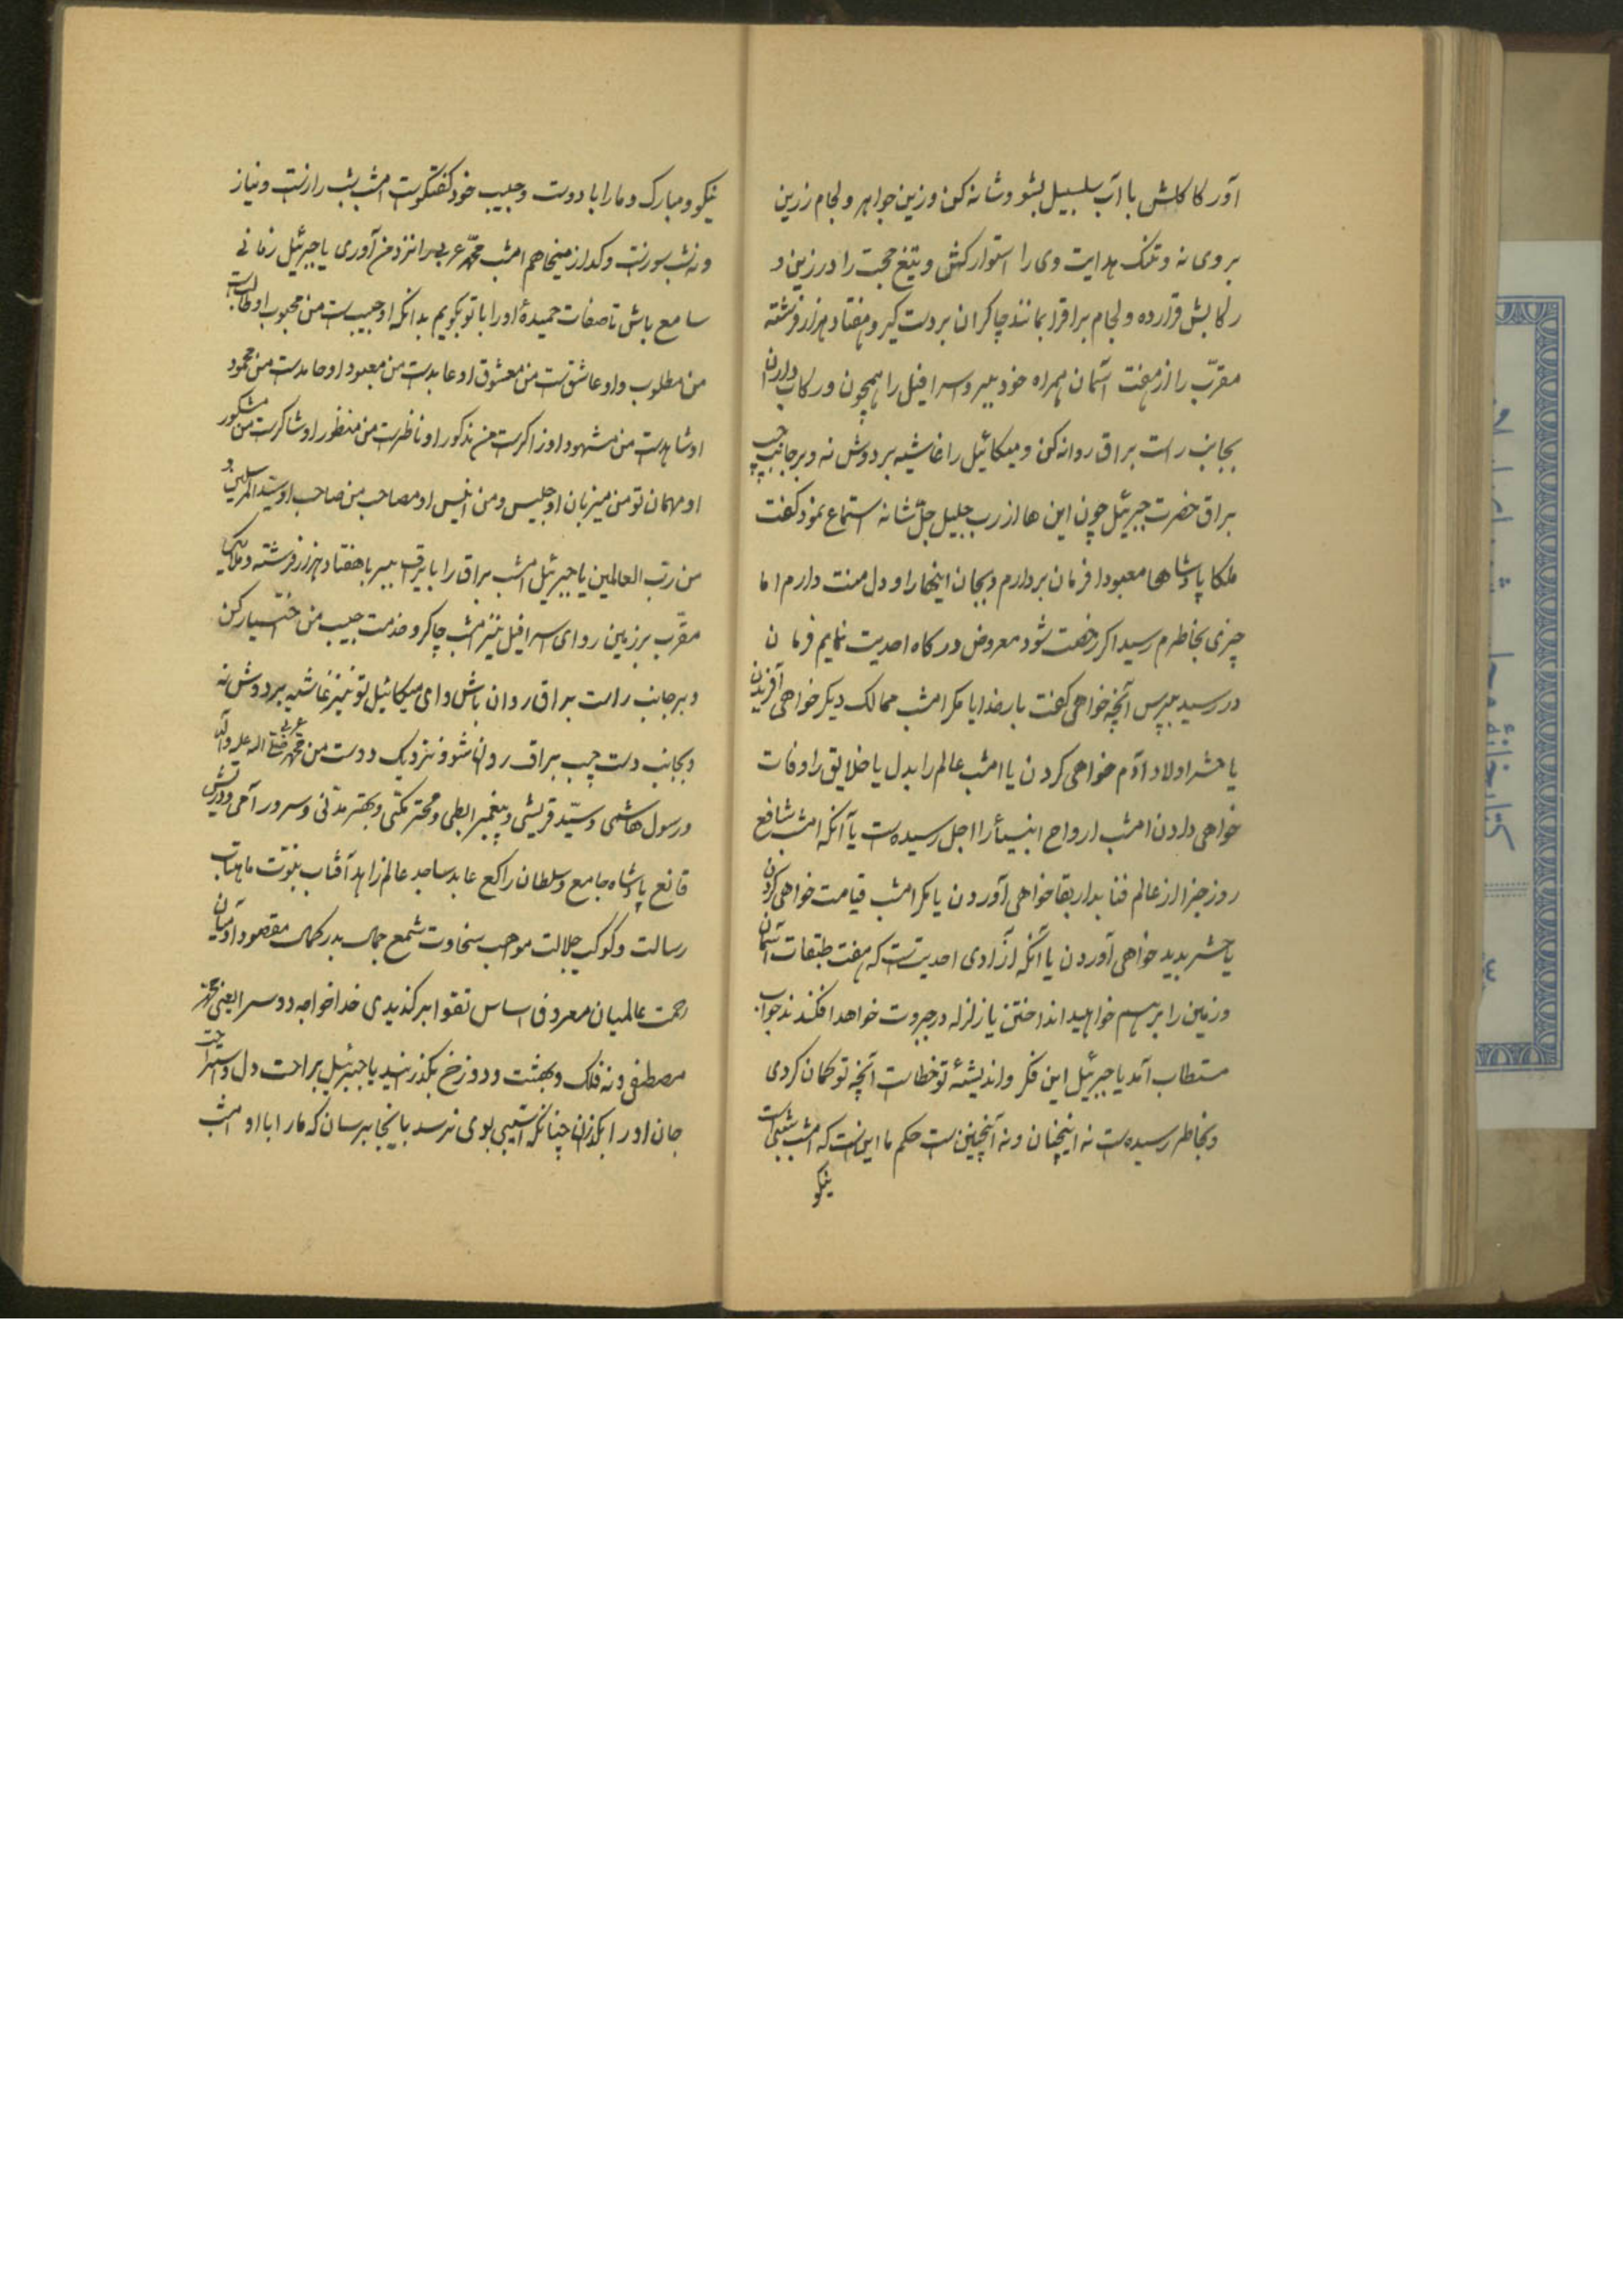 آور کاکلش با آب سلسبیل بشو و شانه کن و زین جواهر و لجام زرین
بر وی نه و تنک هدایت وی را استوار کش و تیغ حجت را در زین و
رکابش قرار ده و لجام براقرا بمانند چاکران بر دست کیر و هفتاد هزار فرشته
مقرّب را از هفت آسمان همراه خود ببر و سرافیل را همچون رکاب داران
بجانب راست براق روانه کن و میکائیل را غاشیه بر دوش نه و بر جانب چپ
براق حضرت جبرئیل چون این ها از رب جلیل جلّ شانه استماع نمود کفت
ملکا پادشاها معبودا فرمان بردارم و بجان اینها را و دل منت دارم اما
چیزی بخاطرم رسید اکر رخصت شود معروض درکاه احدیت نمایم فرمان
در رسید بپرس آنچه خواهی کفت بار خدایا مکر امشب ممالک دیکر خواهی آفریدن
یا حشر اولاد آدم خواهی کردن یا امشب عالم را بدل یا خلایق را وفات
خواهی دادن امشب ارواح انبیأ را اجل رسیدهست یا آنکه امشب شافع
روز جزا از عالم فنا بدار بقا خواهی آوردن یا مکر امشب قیامت خواهی کردن
یا حشر پدید خواهی آوردن یا آنکه آزادی احدیتست که هفت طبقات آسمان
و زمین را بر هم خواهید انداختن یا زلزله در جبروت خواهد افکند ندجواب
مستطاب آمد یا جبرئیل این فکر و اندیشهٔ تو خطاست آنچه تو کمان کردی
و بخاطر رسیدهست نه اینچنان و نه آنچنین ست حکم ما اینست که امشب شبیست
نیکو
نیکو و مبارک و ما را با دوست و حبیب خود کفتکوست امشب شب رازست و نیاز
و نه شب سوزست و کداز میخاهم امشب محمّد عربی را نزد من آوری یا جبرئیل زمانی
سامع باش تا صفات حمیدهٔ او را با تو بکویم بدانکه او حبیب ست من محبوب او طالبست
من مطلوب و او عاشق ست من معشوق او عابدست من معبود او حامدست من محمود
او شاهدست من مشهود او ذاکرست من مذکور او ناظرست من منظور او شاکرست من مشکور
او مهمان تو من میزبان او جلیس و من انیس او مصاحب من صاحب او سیّد المرسلین و
من ربّ العالمین یا جبرئیل امشب براق را با برق ببر با هفتاد هزار فرشته و ملائکی
مقرّب بر زمین رو ای سرافیل نیز امشب چاکر و خدمت حبیب من اختیار کن
و بر جانب راست براق روان باش و ای میکائیل تو نیز غاشیه بر دوش نه
و بجانب دست چپ براق روان شو و نزدیک دوست من محمّد عربی صلی الله علیه و آله
و رسول هاشمی و سیّد قریشی و پیغمبر ابطحی و محتر مکّی و بهتر مدّنی و سرور آمی و درویش
قانع پادشاه جامع و سلطان راکع عابد ساجد عالم زاهد آفتاب نبوّت ماهتاب
رسالت و کوکب جلالت موجب سخاوت شمع جمال بدر کمال مقصود آدمیان
رحمت عالمیان معروف اساس تقوا برکذیدی خدا خواجه دو سرا یعنی محمّد
مصطفی و نه فلک و بهشت و دوزخ بکذرانید یا جبرئیل براحت دل و استراحت
جان او را بکذران چنانکه آسیبی بوی نرسد باینجا برسان که ما را با او امشب